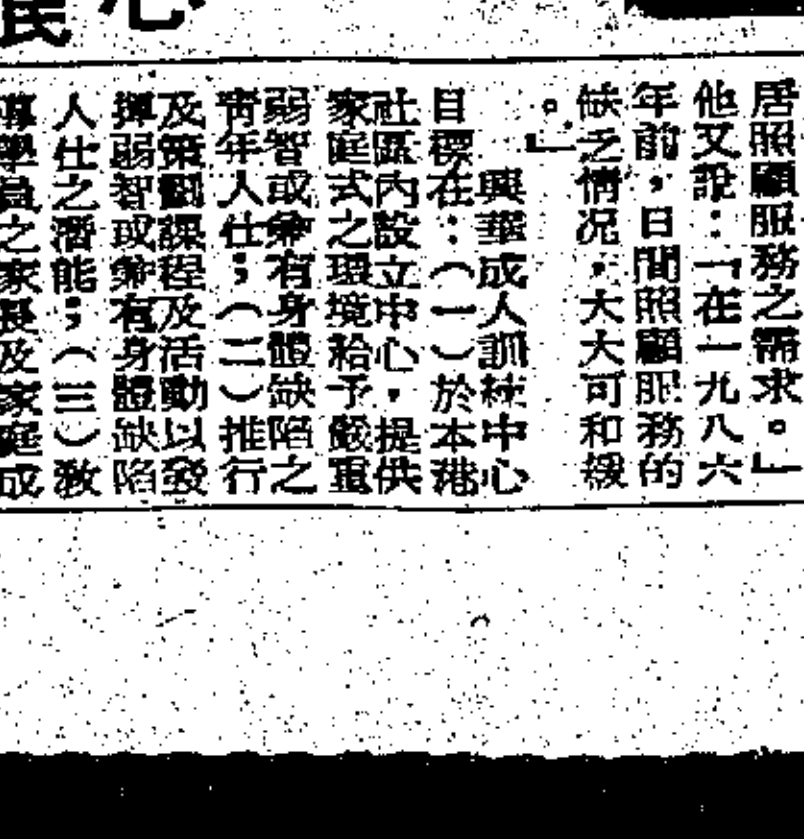 居照顧服務之需求。」
他又說：「在一九八六
年前，日間照顧服務的
缺乏情况，大大可和緩
。」
興華成人訓練中心
目標在：（一）於本港
社區內設立中心，提供
家庭式之環境給予嚴重
弱智或兼有身體缺陷之
靑年人仕；（二）推行
及策劃課程及活動以發
揮弱智或兼有身體缺陷
人仕之潛能；（三）敎
導學員之家長及家庭成
心
民